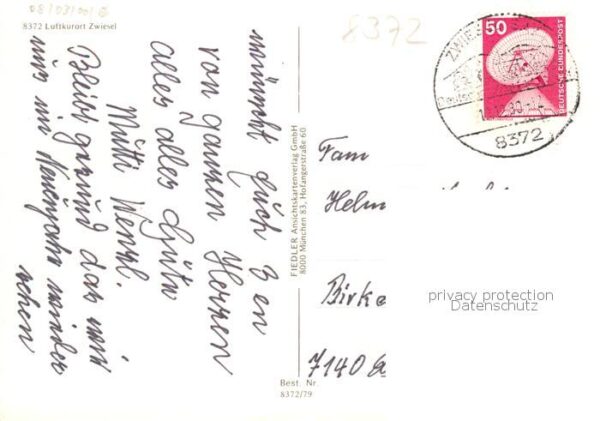 08/031001 G
8372 Luftkurort Zwiesel
8372
50
DEUTSCHE BUNDESPOST
ZWIES
8372
wünscht Euch 3 en
von ganzen Herzen
alles alles Gute
Mutti Wenzl.
Bleibt gesund das wir
uns im Neuenjahr wieder
sehen
FIEDLER Ansichtskartenverlag GmbH
8000 München 83, Hofangerstraße 60
Best. Nr.
8372/79
Fam
Helm
Birke
7140
privacy protection
Datenschutz